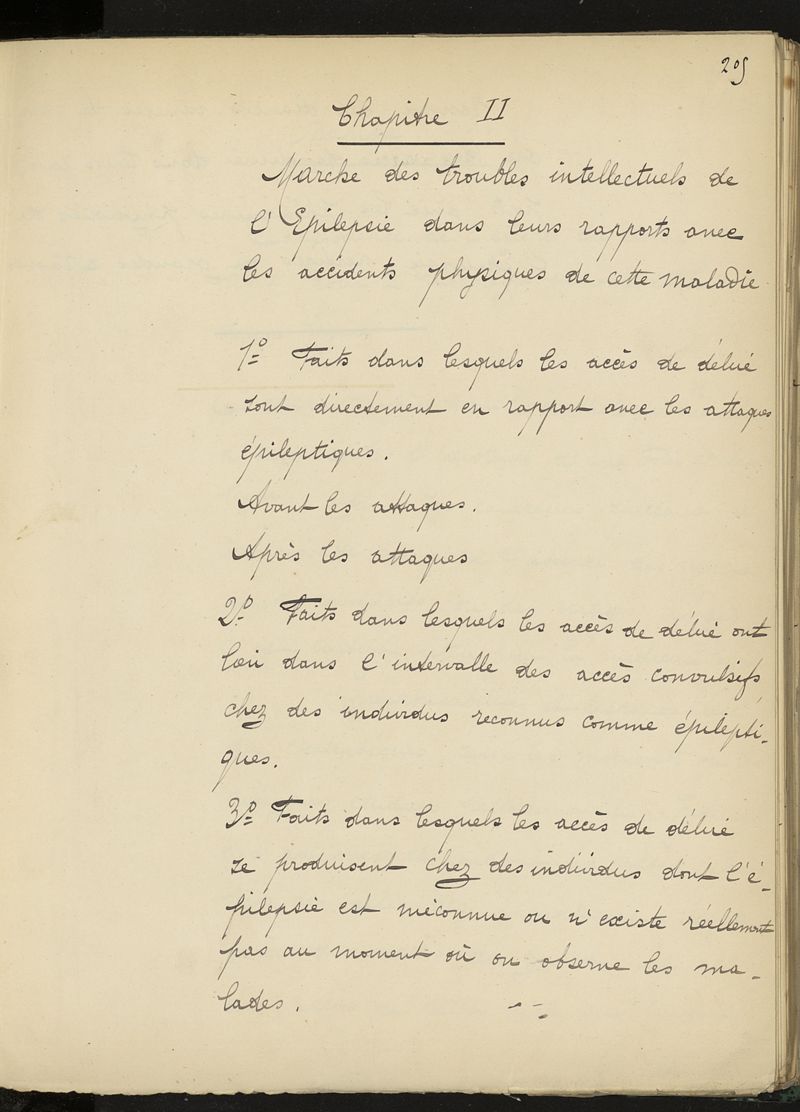 205
Chapitre II
Marche des troubles intellectuels de
l'Epilepsie dans leurs rapports avec
les accidents physiques de cette maladie
1º Faits dans lesquels les accès de délire
sont directement en rapport avec les attaques
épileptiques.
Avant les attaques.
Après les attaques
2º Faits dans lesquels les accès de délire ont
lieu dans l'intervalle des accès convulsifs,
chez des individus reconnus comme épilepti-
ques.
3º Faits dans lesquels les accès de délire
se produisent chez des individus dont l'é-
pilepsie est méconnue ou n'existe réellement
pas au moment où on observe les ma-
lades.